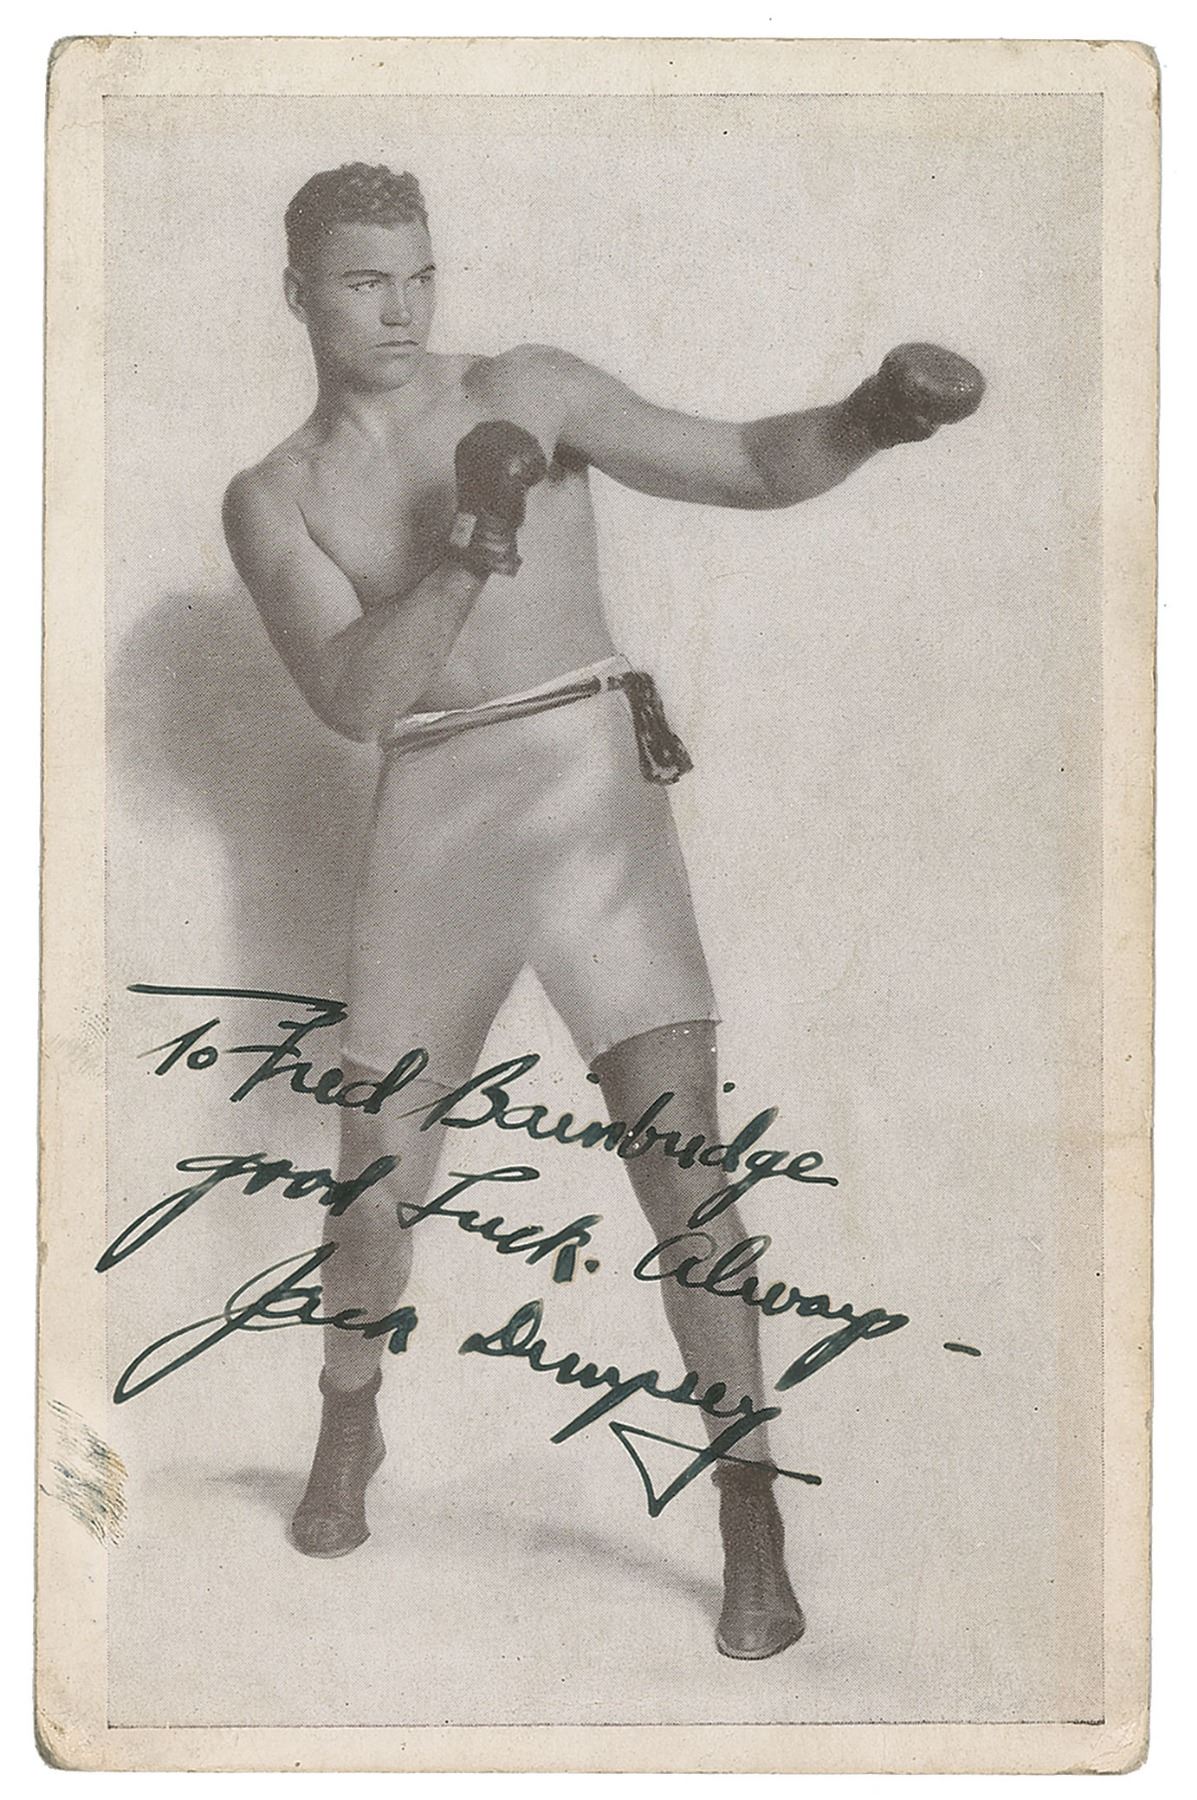 To Fred Bainbridge
good Luck. Always -
Jack Dempsey